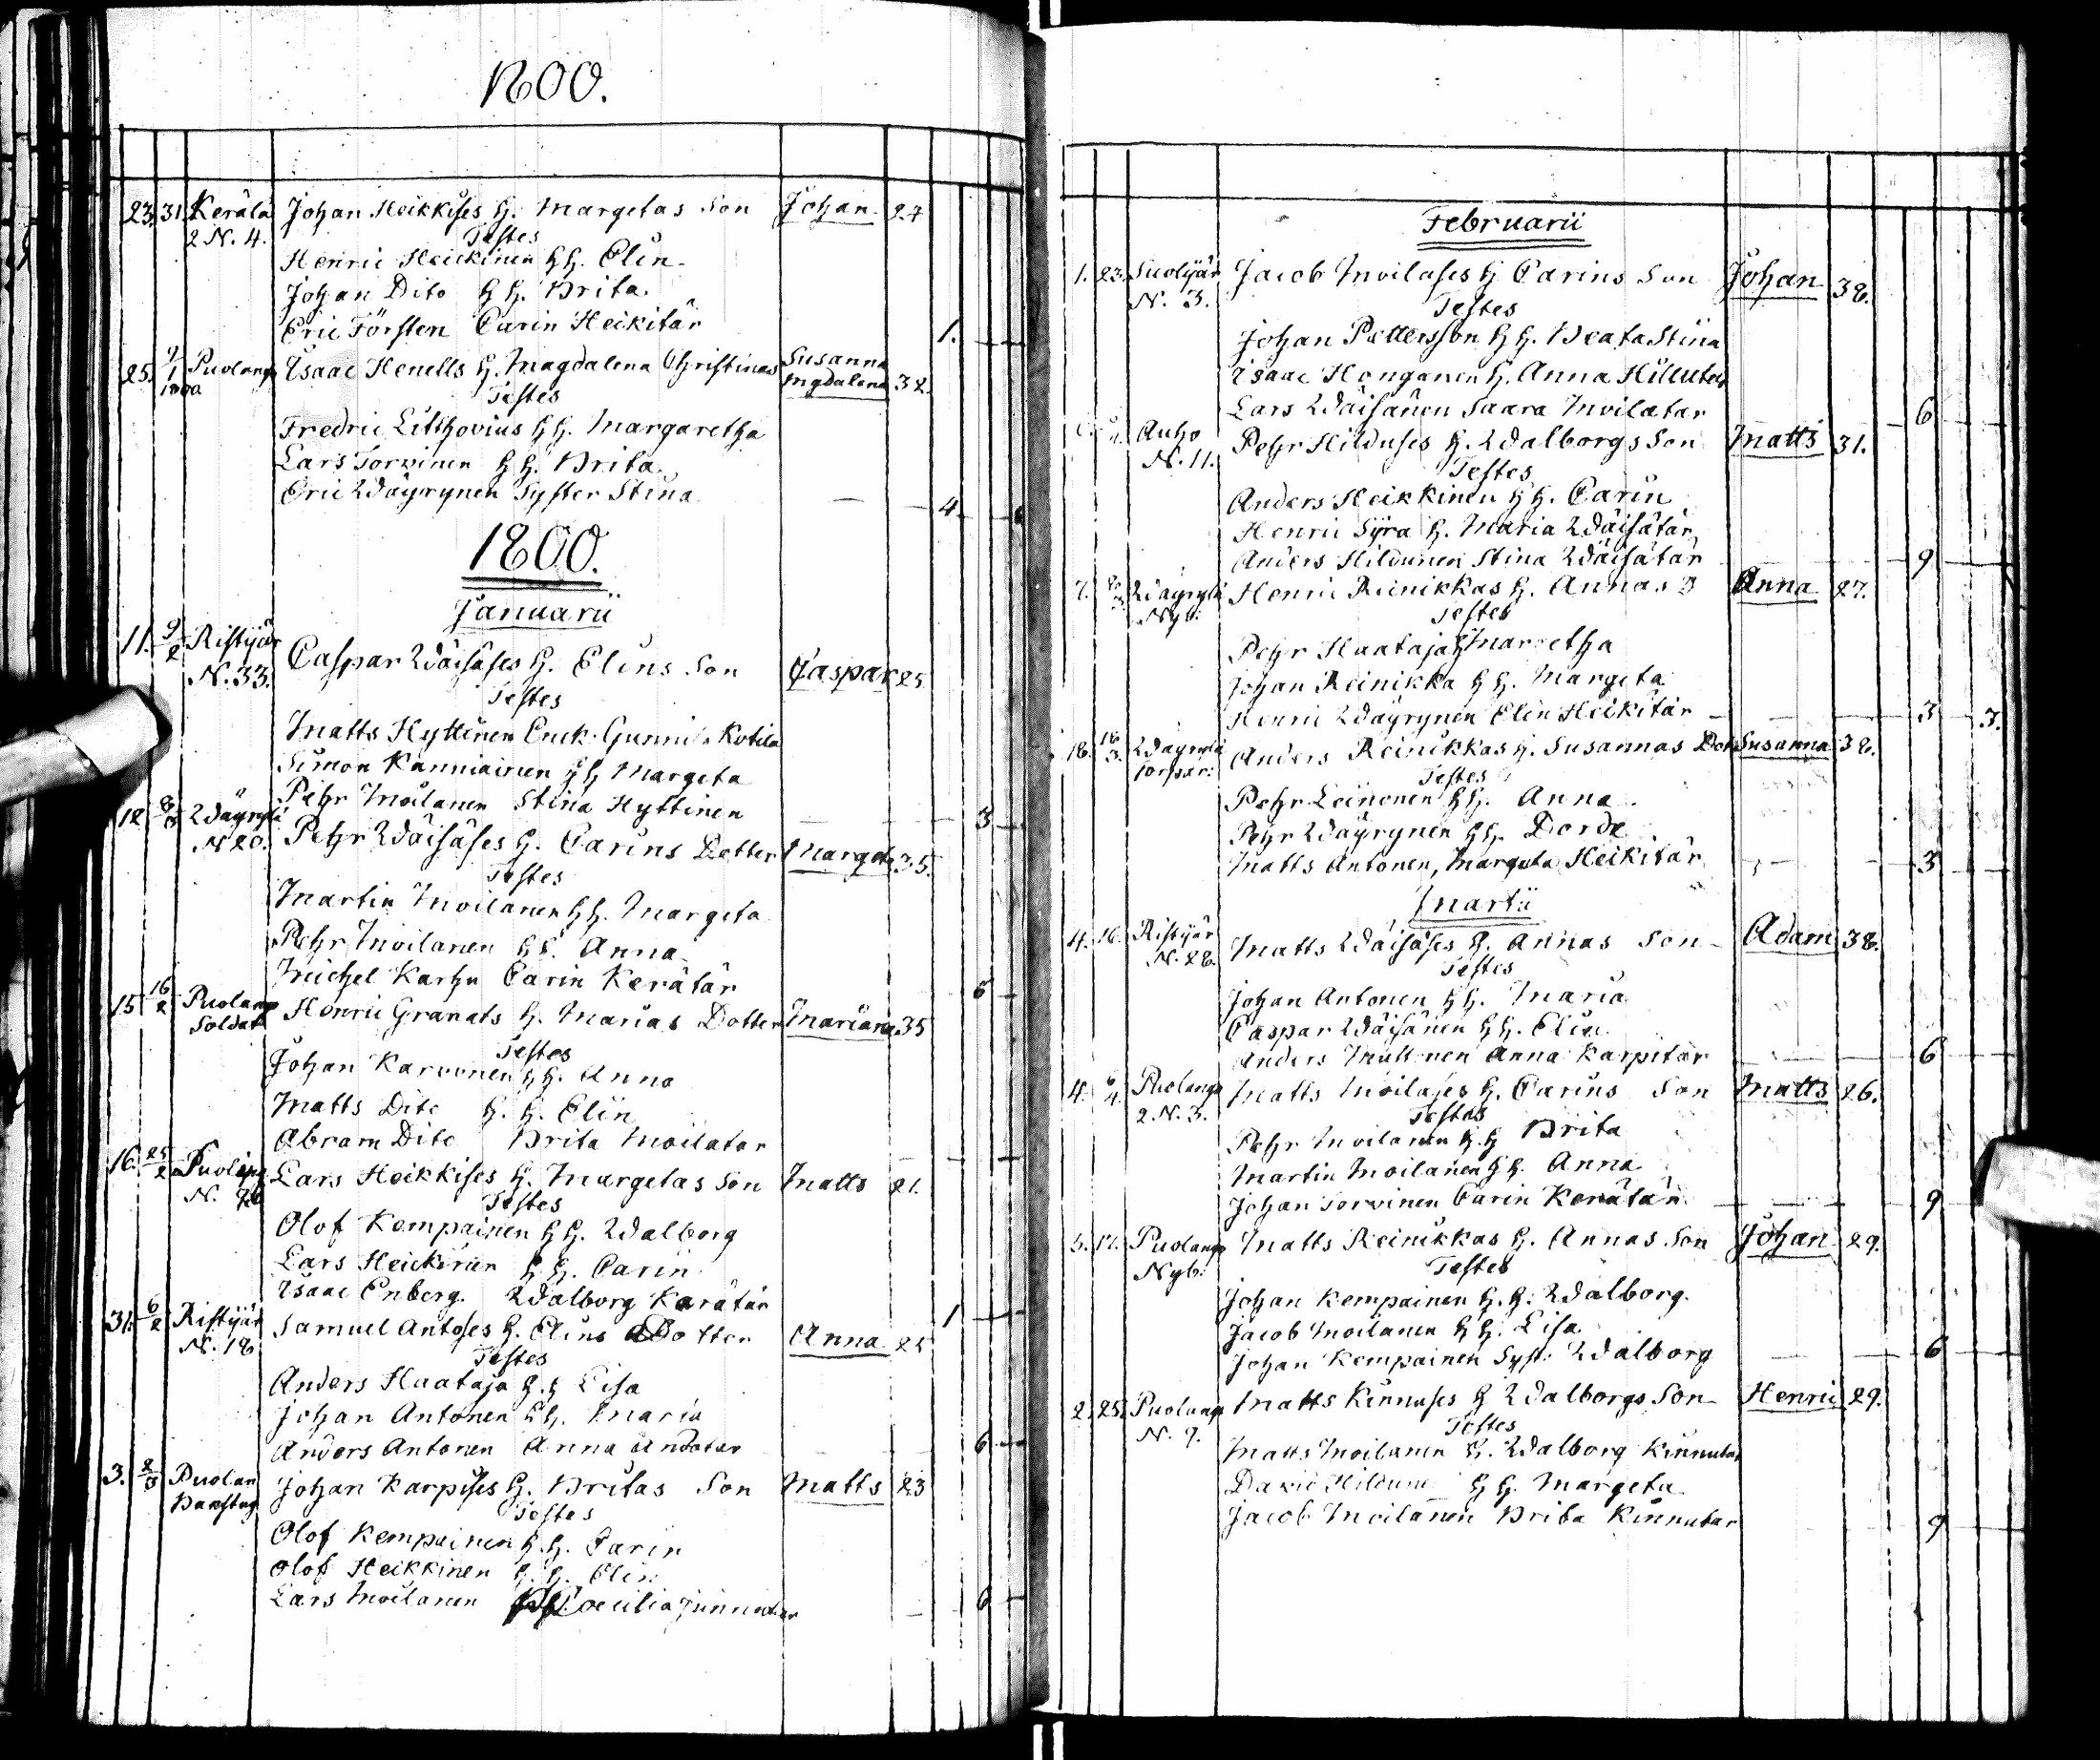 1800.
23. 31. Kerälä Johan Heikkises H. Margetas Son Johan 27
2 N. 4. Testes
Henric Heickinen HH. Elin
Johan Dito HH. Brita.
Eric Försten Carin Heikitär 1.
25. 9/1 1800 Puolang Isaac Henells H. Magdalena Christinas Susanna Magdalena 32.
Testes
Fredric Lithovius HH. Margaretha
Lars Torvinen HH. Brita.
Eric Wäyrynen Syster Stina 4.
1800.
Januarii
11. 9/2 Ristijär Caspar Wäisäses H. Elins Son Caspar 25
N. 33. Testes
Matts Hyttinen Enck. Kotila
Simon Kanniainen HH Margeta
Pehr Moilanen Stina Hyttinen 3
12 8/3 Wäyrylä Pehr Wäisäses H. Carins Dotter Marget 35.
N 20. Testes
Martin Moilanen HH. Margeta
Pehr Moilanen HH. Anna
Michel Karhu Carin Kerätär 6
15 16/2 Puolang Henric Granats H. Marias Dotter Mariana 35
Soldat Testes
Johan Karvonen HH. Anna
Matts Dito H. H. Elin
Abram Dito Brita Moilatar
16. 25/2 Puolang Lars Heikkises H. Margetas Son Matts 21.
N. Testes
Olof Kempainen HH. Walborg
Lars Heickinen HH. Carin
Isaac Enberg. Walborg Karätär 1
31. 6/2 Ristijär Samuel Antoses H. Elins Dotter Anna 25
N. 18 Testes
Anders Haataja H. H Lisa
Johan Antonen HH. Maria
Anders Antonen Anna Andotar 6
3. 2/3 Puolan Johan Karpises H. Britas Son Matts 23
Testes
Olof Kempainen H. H. Carin
Olof Heikkinen H. H. Elin
Lars Moilanen Coecilia 6
Februarii
1. 23. Suolijär Jacob Moilases H Carins Son Johan 38.
N. 3. Testes
Johan Pettersson HH. Beata Stina
Isaac Honganen H. Anna
Lars Wäisänen Saara Moilatar 6
Auho Pehr Hilduses H. Walborgs Son Matts 31.
N. 11. Testes
Anders Heikkinen HH. Carin
Henric Syra H. Maria Wäisätär
Anders Hildunen Stina Wäisätär 9
7. Wäyrylä Henric Reinikkas H. Annas D Anna 27.
Nyb: Testes
Pehr Haataja H Margetha
Johan Reinikka HH. Margeta
Henric Wäyrynen Elin Heikitär 3 3.
18. 18/3. Wäyrylä Anders Reinikkas H. Susannas Dott Susanna 38.
Torpar: Testes
Pehr Leinonen HH. Anna
Pehr Wäyrynen HH. Dorde
Matts Antonen, Margeta Heikitär 3
Martii
4. 16. Ristijär Matts Wäisäses H. Annas Son Adam 38.
N. 28. Testes
Johan Antonen HH. Maria
Caspar Wäisänen HH. Elin
Anders Anna Karpitar 6
4. 6/4. Puolang Matts Moilases H. Carins Son Matts 26.
2 N. 3. Testes
Pehr Moilanen H. H Brita
Martin Moilanen HH. Anna
Johan Torvinen Carin Kerätär 9
5. 12. Puolang Matts Reinikkas H. Annas Son Johan 29.
Nyb: Testes
Johan Kempainen H. H. Walborg.
Jacob Moilanen HH. Lisa
Johan Kempainen Syst: Walborg 6
2. 25. Puolang Matts Kinnuses H Walborgs Son Henric 29.
N. 7. Testes
Matts Moilanen H. Walborg Kinnutar
David HH. Margeta
Jacob Moilanen Brita Kinnutar 9